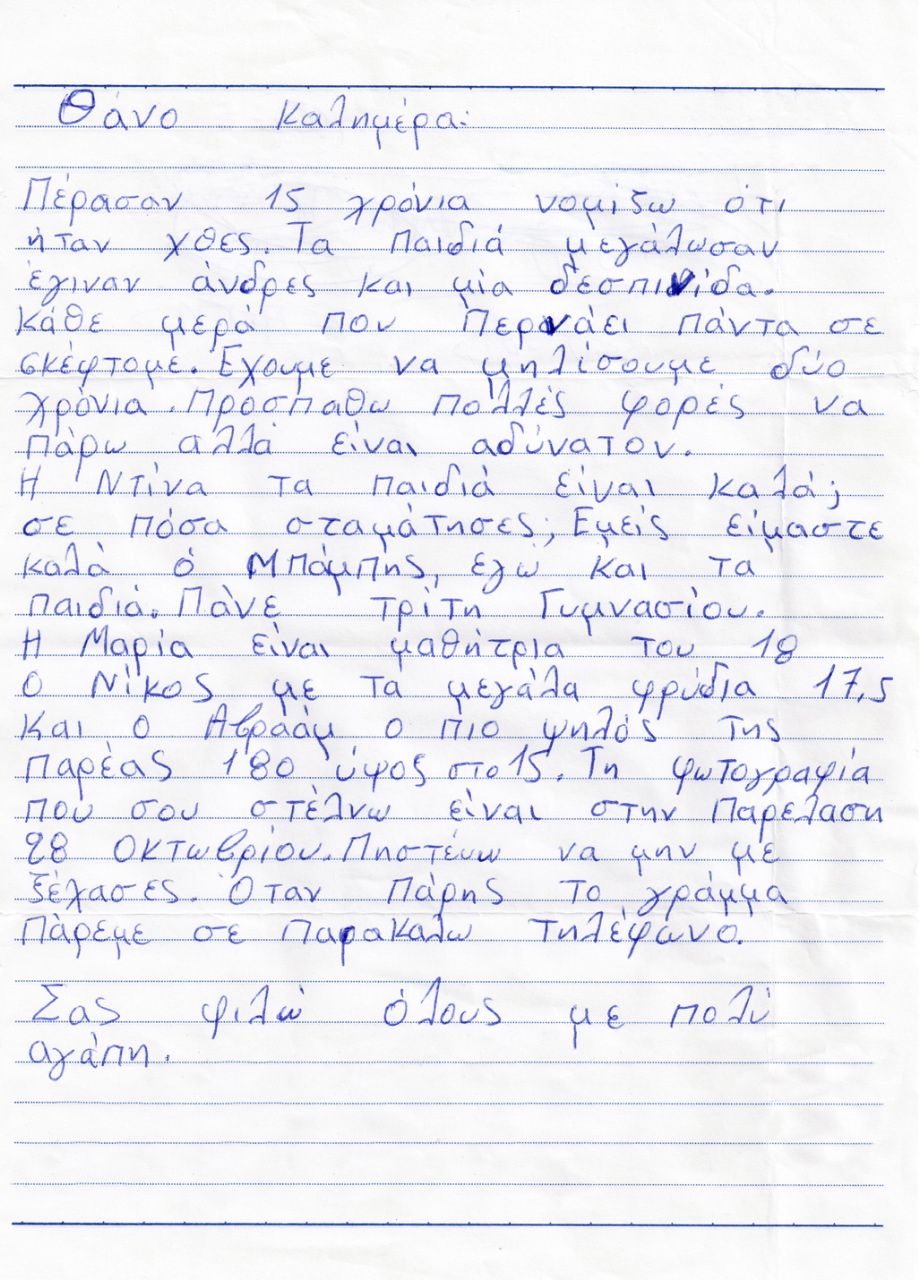 Θάνο Καλημέρα:
Πέρασαν 15 χρόνια νομίζω ότι
ήταν χθες. Τα παιδιά μεγάλωσαν
έγιναν άνδρες και μία δεσπινίδα.
Κάθε μερά που περνάει πάντα σε
σκέφτομε. Έχουμε να μηλίσουμε δύο
χρόνια. Προσπαθω πολλές φορές να
πάρω αλλά είναι αδύνατον.
Η Ντίνα τα παιδιά είναι καλά;
σε πόσα σταμάτησες; Εμείς είμαστε
καλά ό Μπάμπης, εγώ και τα
παιδιά. Πάνε τρίτη Γυμνασίου.
Η Μαρία είναι μαθήτρια του 18
ο Νίκος με τα μεγάλα φρύδια 17,5
και ο Αβραάμ ο πιο ψηλός της
παρέας 180 ύψος στο 15. Τη φωτογραφία
που σου στέλνω είναι στην Παρελαση
28 Οκτωβρίου. Πηστέυω να μην με
ξέχασες. Όταν πάρης το γράμμα
Πάρεμε σε παρακαλω τηλέφωνο.
Σας φιλώ όλους με πολύ
αγάπη.